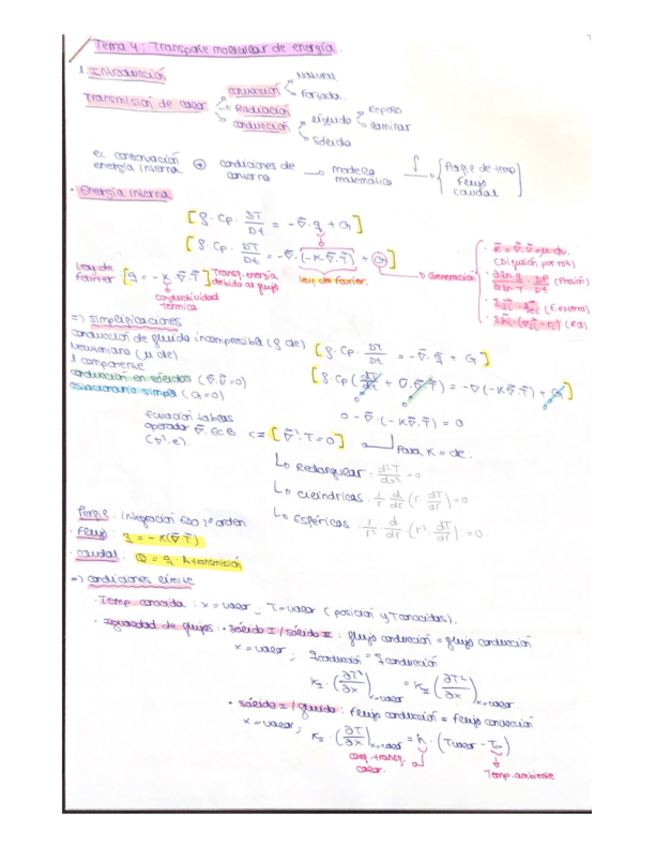 Tema 4: Transporte molecular de energía.
1. Introducción
Transmisión de calor
convección
Natural
Forzada
Radiación
conducción
Líquido
Reposo
Laminar
Sólido
ec conservación energía interna ⊕ condiciones de contorno → modelo matemático ∫ → [Perfil de temp
Flujo
caudal]
· Energía interna
[ρ·Cp· DT/Dt = -∇̄·q̄ + G]
[ρ·Cp· DT/Dt = -∇̄·(-K∇̄·T̄) + G] → Generación
Ley de Fourier
Ley de Fourier [q = -K·∇̄·T̄] Transp. energía debida al flujo
conductividad térmica
(Difusión por rot)
(Presión)
(F. externa)
(RQ)
=) simplificaciones
conducción de fluido incompresible (ρ cte) [ρ·Cp· DT/Dt = -∇̄·q̄ + G]
Newtoniano (μ cte)
1 componente
conducción en sólidos (∇̄·v̄=0)
estacionario simple (G=0)
0 - ∇̄·(-K∇̄·T̄) = 0
Ecuación Laplace
operador
<= [∇̄²·T=0] Para K = cte.
Rectangular: d²T/dx² = 0
Cilíndricas: 1/r d/dr (r· dT/dr) = 0
Esféricas: 1/r² · d/dr (r²· dT/dr) = 0.
Perfil: Integración EDO 2º orden
· Flujo: q = -K(∇̄·T̄)
· caudal: Q = q · A transmisión
=) condiciones límite
· Temp conocida: x = valor; T = valor (posición y T conocidas).
· Igualdad de flujos: · sólido I / sólido II: flujo conducción = flujo conducción
x = valor; q conducción = q conducción
K_I · (∂T¹/∂x)_x=valor = K_II (∂T²/∂x)_x=valor.
· sólido I / fluido: Flujo conducción = Flujo convección
x = valor; K_I · (∂T/∂x)_x=valor = h · (T valor - T∞)
coef. transf. calor.
Temp. ambiente